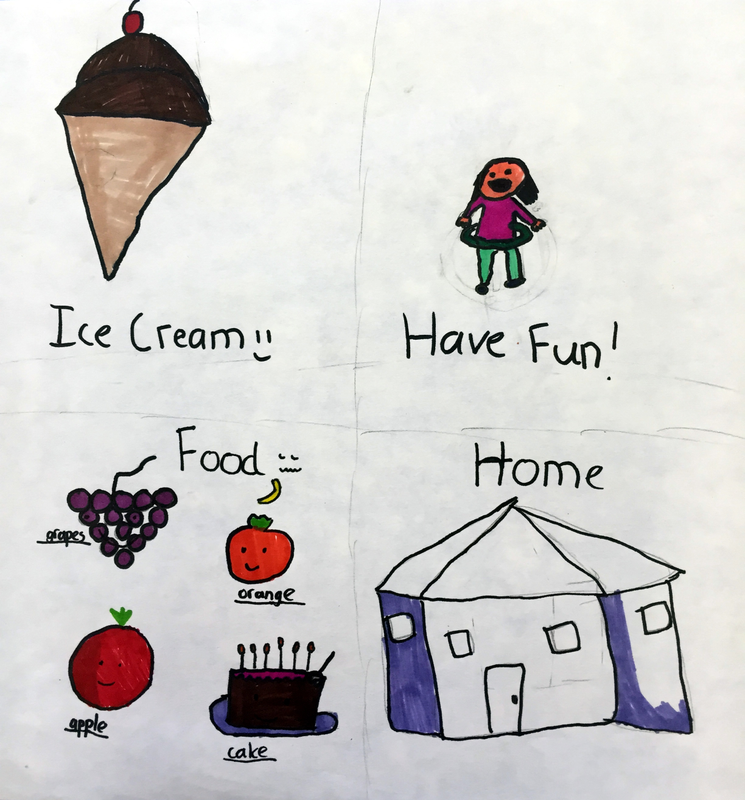 Ice Cream
Have Fun!
Food
grapes
orange
apple
cake
Home